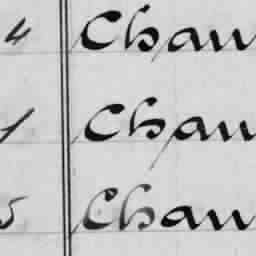 4 Chau
1 Chau
5 Chau